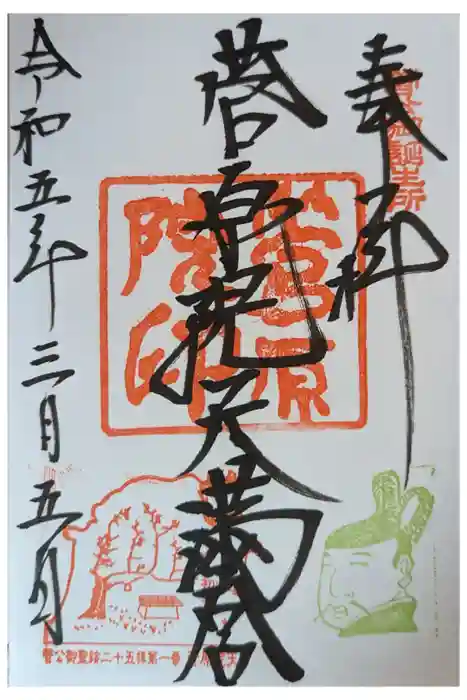 奉拝
菅公御誕生所
菅原院天満宮
菅原
院印
令和五年三月五日
菅公御聖蹟二十五拝第一番